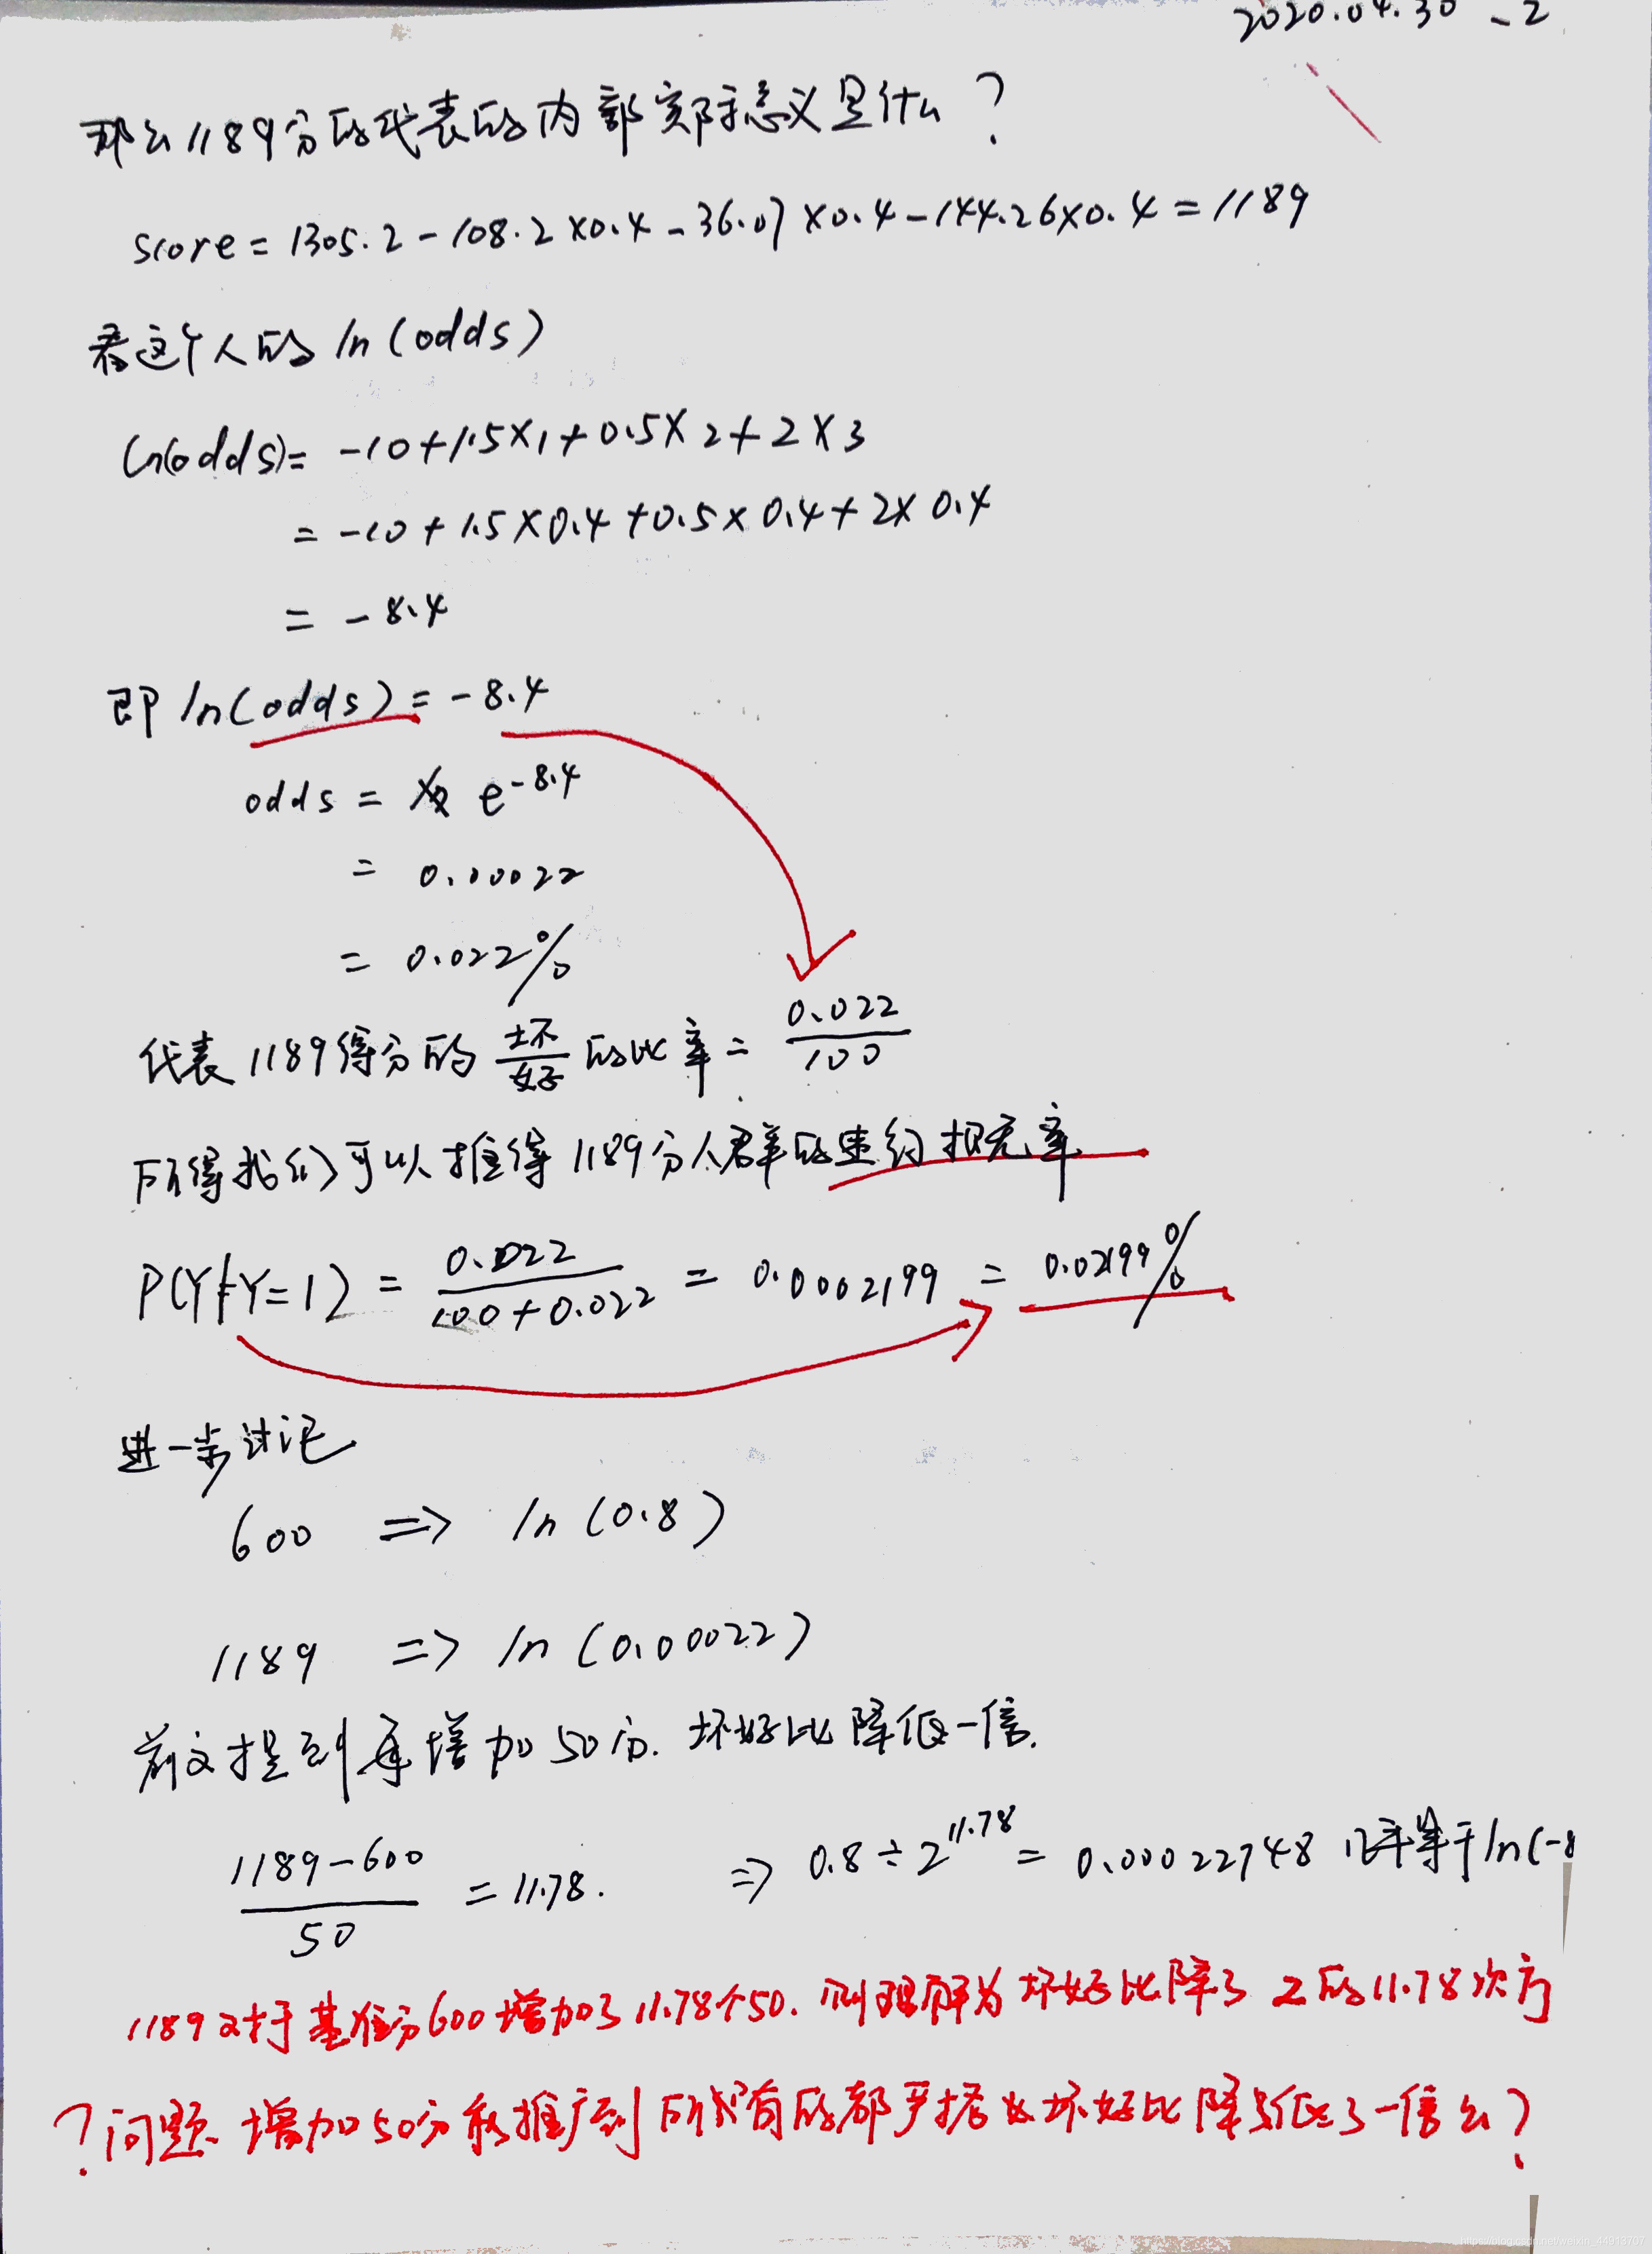 2020.04.30 -2
那么1189分的代表的内部实际意义是什么?
score = 1305.2 - 108.2 × 0.4 - 36.07 × 0.4 - 144.26 × 0.4 = 1189
看这个人的 ln(odds)
ln(odds) = -10 + 1.5 × 1 + 0.5 × 2 + 2 × 3
= -10 + 1.5 × 0.4 + 0.5 × 0.4 + 2 × 0.4
= -8.4
即 ln(odds) = -8.4
odds = e^-8.4
= 0.00022
= 0.022%
代表1189得分的 坏/好 的比率 = 0.022/100
所得我们可以推得1189分人群的违约概率
P(Y|Y=1) = 0.022/(100+0.022) = 0.0002199 = 0.02199%
进一步讨论
600 => ln(0.8)
1189 => ln(0.00022)
前文提到每增加50分.坏好比降低一倍.
(1189-600)/50 = 11.78. => 0.8÷2^11.78 = 0.00022748 几乎等于ln(-8
1189对于基准分600增加了11.78个50.则理解为坏好比降了2的11.78次方
?问题.增加50分能推广到所有的都严格坏好比降低了一倍么?